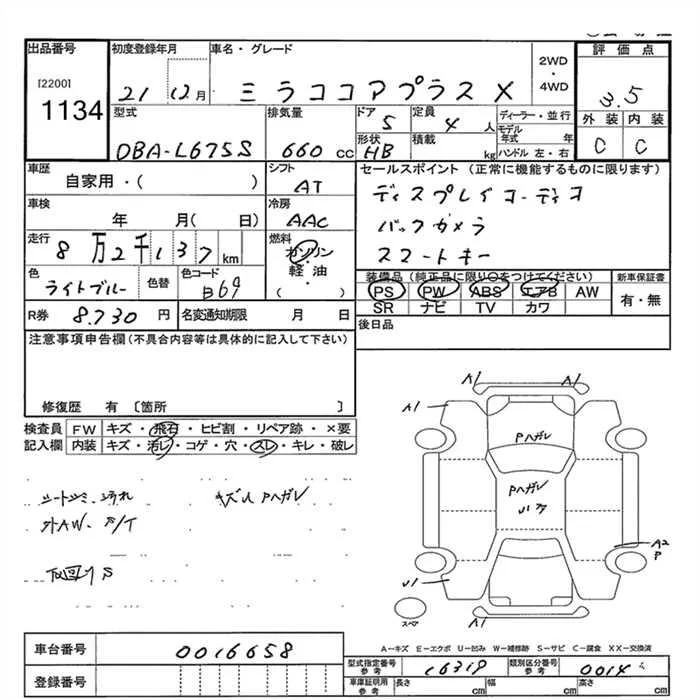 出品番号 初度登録年月 車名・グレード 2WD・4WD 評価点
[2200]
1134
21 12月 ミラココアプラス X 3.5
型式 排気量 ドア 5 定員 4人 ディーラー・並行 外装 内装
モデル年式 年
DBA-L675S 660 cc 形状 HB 積載 kg ハンドル 左・右 C C
車歴 シフト セールスポイント (正常に機能するものに限ります)
自家用・( ) AT ディスプレイコーディオ
車検 冷房 バックカメラ
年 月( 日) AAC スマートキー
走行 燃料
8万2千137km ガソリン・軽油( ) 装備品 (純正品に限り○をつけてください) 新車保証書
色 ライトブルー 色替 色コード B69 PS PW ABS エアB AW 有・無
R券 8.730円 名変通知期限 月 日 SR ナビ TV カワ
注意事項申告欄(不具合内容等は具体的に記入して下さい) 後日品
修復歴 有 〔箇所 〕
検査員 FW キズ・飛石・ヒビ割・リペア跡・×要
記入欄 内装 キズ・汚レ・コゲ・穴・スレ・キレ・破レ
A1 A1
A1
Pハガレ
シートシミ、汚れ キズ Pハガレ
外AW、
Pハガレ
A2
P
下回りS
U1
スペア
A1
A-キズ E-エクボ U-凹み W-補修跡 S-サビ C-腐食 XX-交換済
車台番号 0016658
型式指定番号 参考 16319 類別区分番号 参考 0014
登録番号
車庫証明用 参考 長さ cm 幅 cm 高さ cm